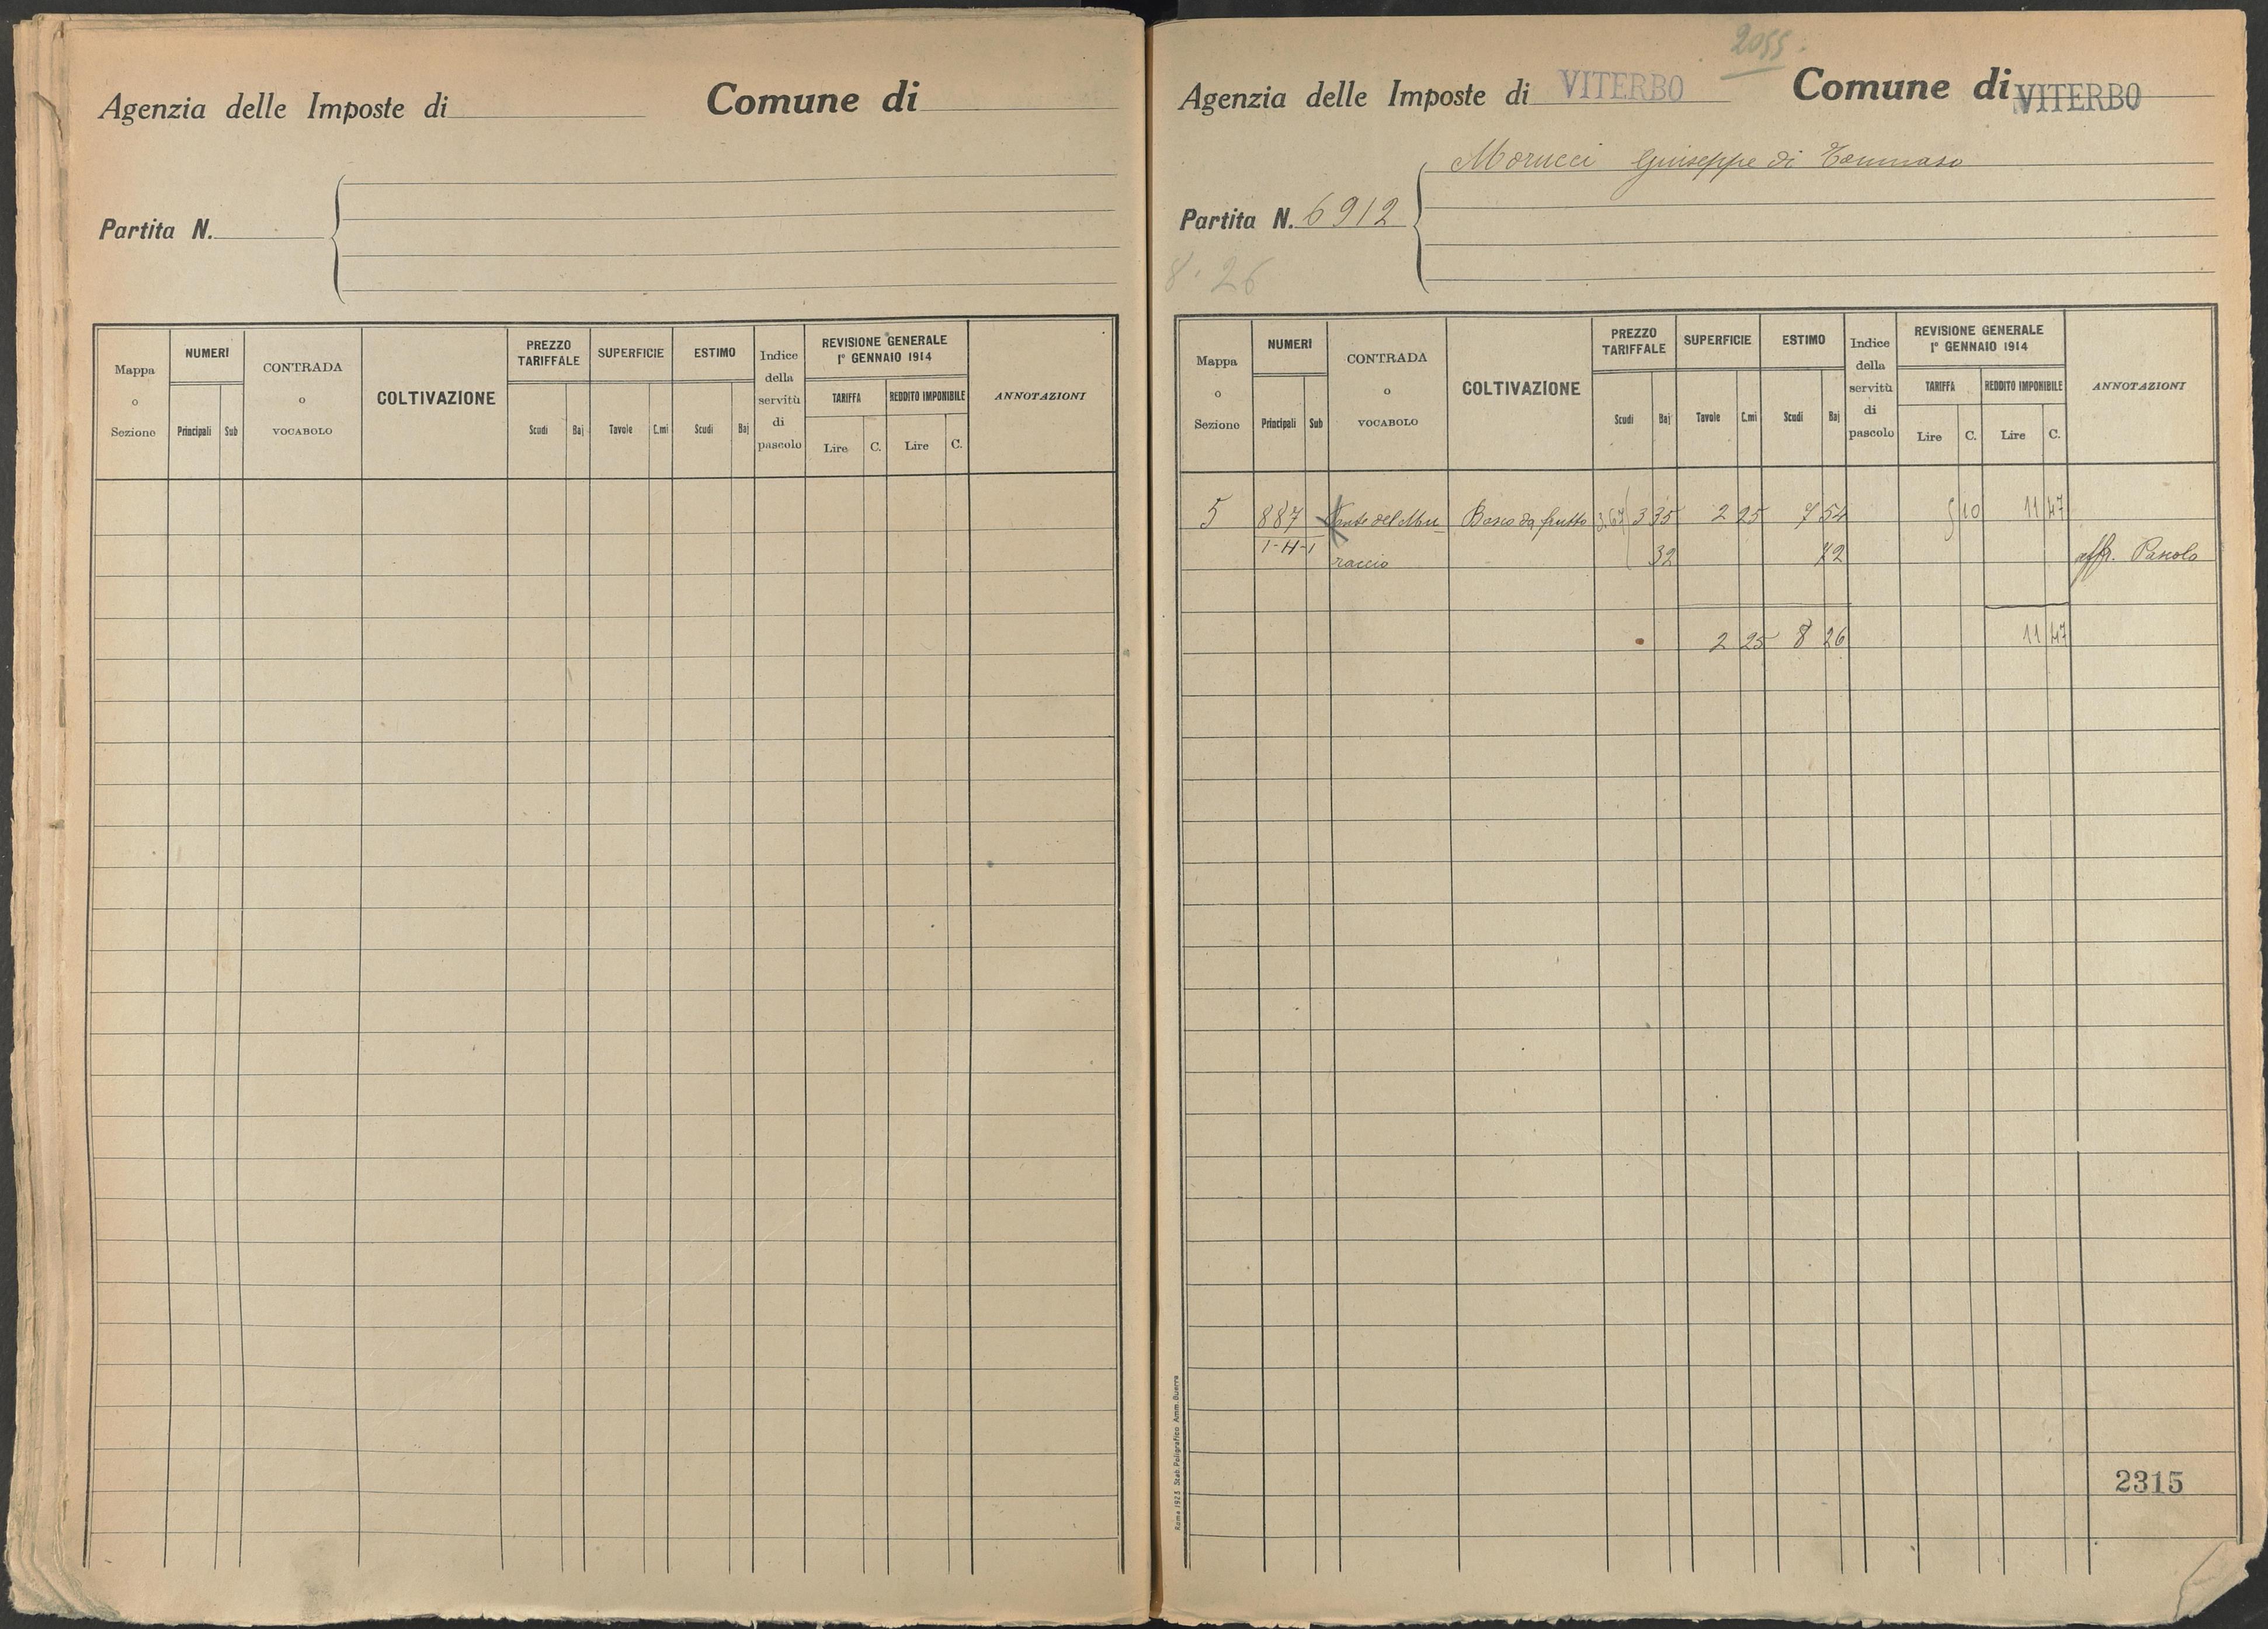 Agenzia delle Imposte di
Comune di
Partita N.
Mappa o Sezione
NUMERI
Principali
Sub
CONTRADA o VOCABOLO
COLTIVAZIONE
PREZZO TARIFFALE
Scudi
Baj
SUPERFICIE
Tavole
C.mi
ESTIMO
Scudi
Baj
Indice della servitù di pascolo
REVISIONE GENERALE
1° GENNAIO 1914
TARIFFA
Lire
C.
REDDITO IMPONIBILE
Lire
C.
ANNOTAZIONI
2055.
Agenzia delle Imposte di VITERBO
Comune di VITERBO
Morucci Giuseppe di Tommaso
Partita N. 6912
8.26
Mappa o Sezione
NUMERI
Principali
Sub
CONTRADA o VOCABOLO
COLTIVAZIONE
PREZZO TARIFFALE
Scudi
Baj
SUPERFICIE
Tavole
C.mi
ESTIMO
Scudi
Baj
Indice della servitù di pascolo
REVISIONE GENERALE
1° GENNAIO 1914
TARIFFA
Lire
C.
REDDITO IMPONIBILE
Lire
C.
ANNOTAZIONI
5 887 del Mu Bosco da frutto 3.67 3 35 2 25 7 54 5 10 11 47
1-H-1 raccio 32 72 affr. Pascolo
2 25 8 26 11 47
2315
Roma 1923 Stab. Poligrafico Amm. Guerra